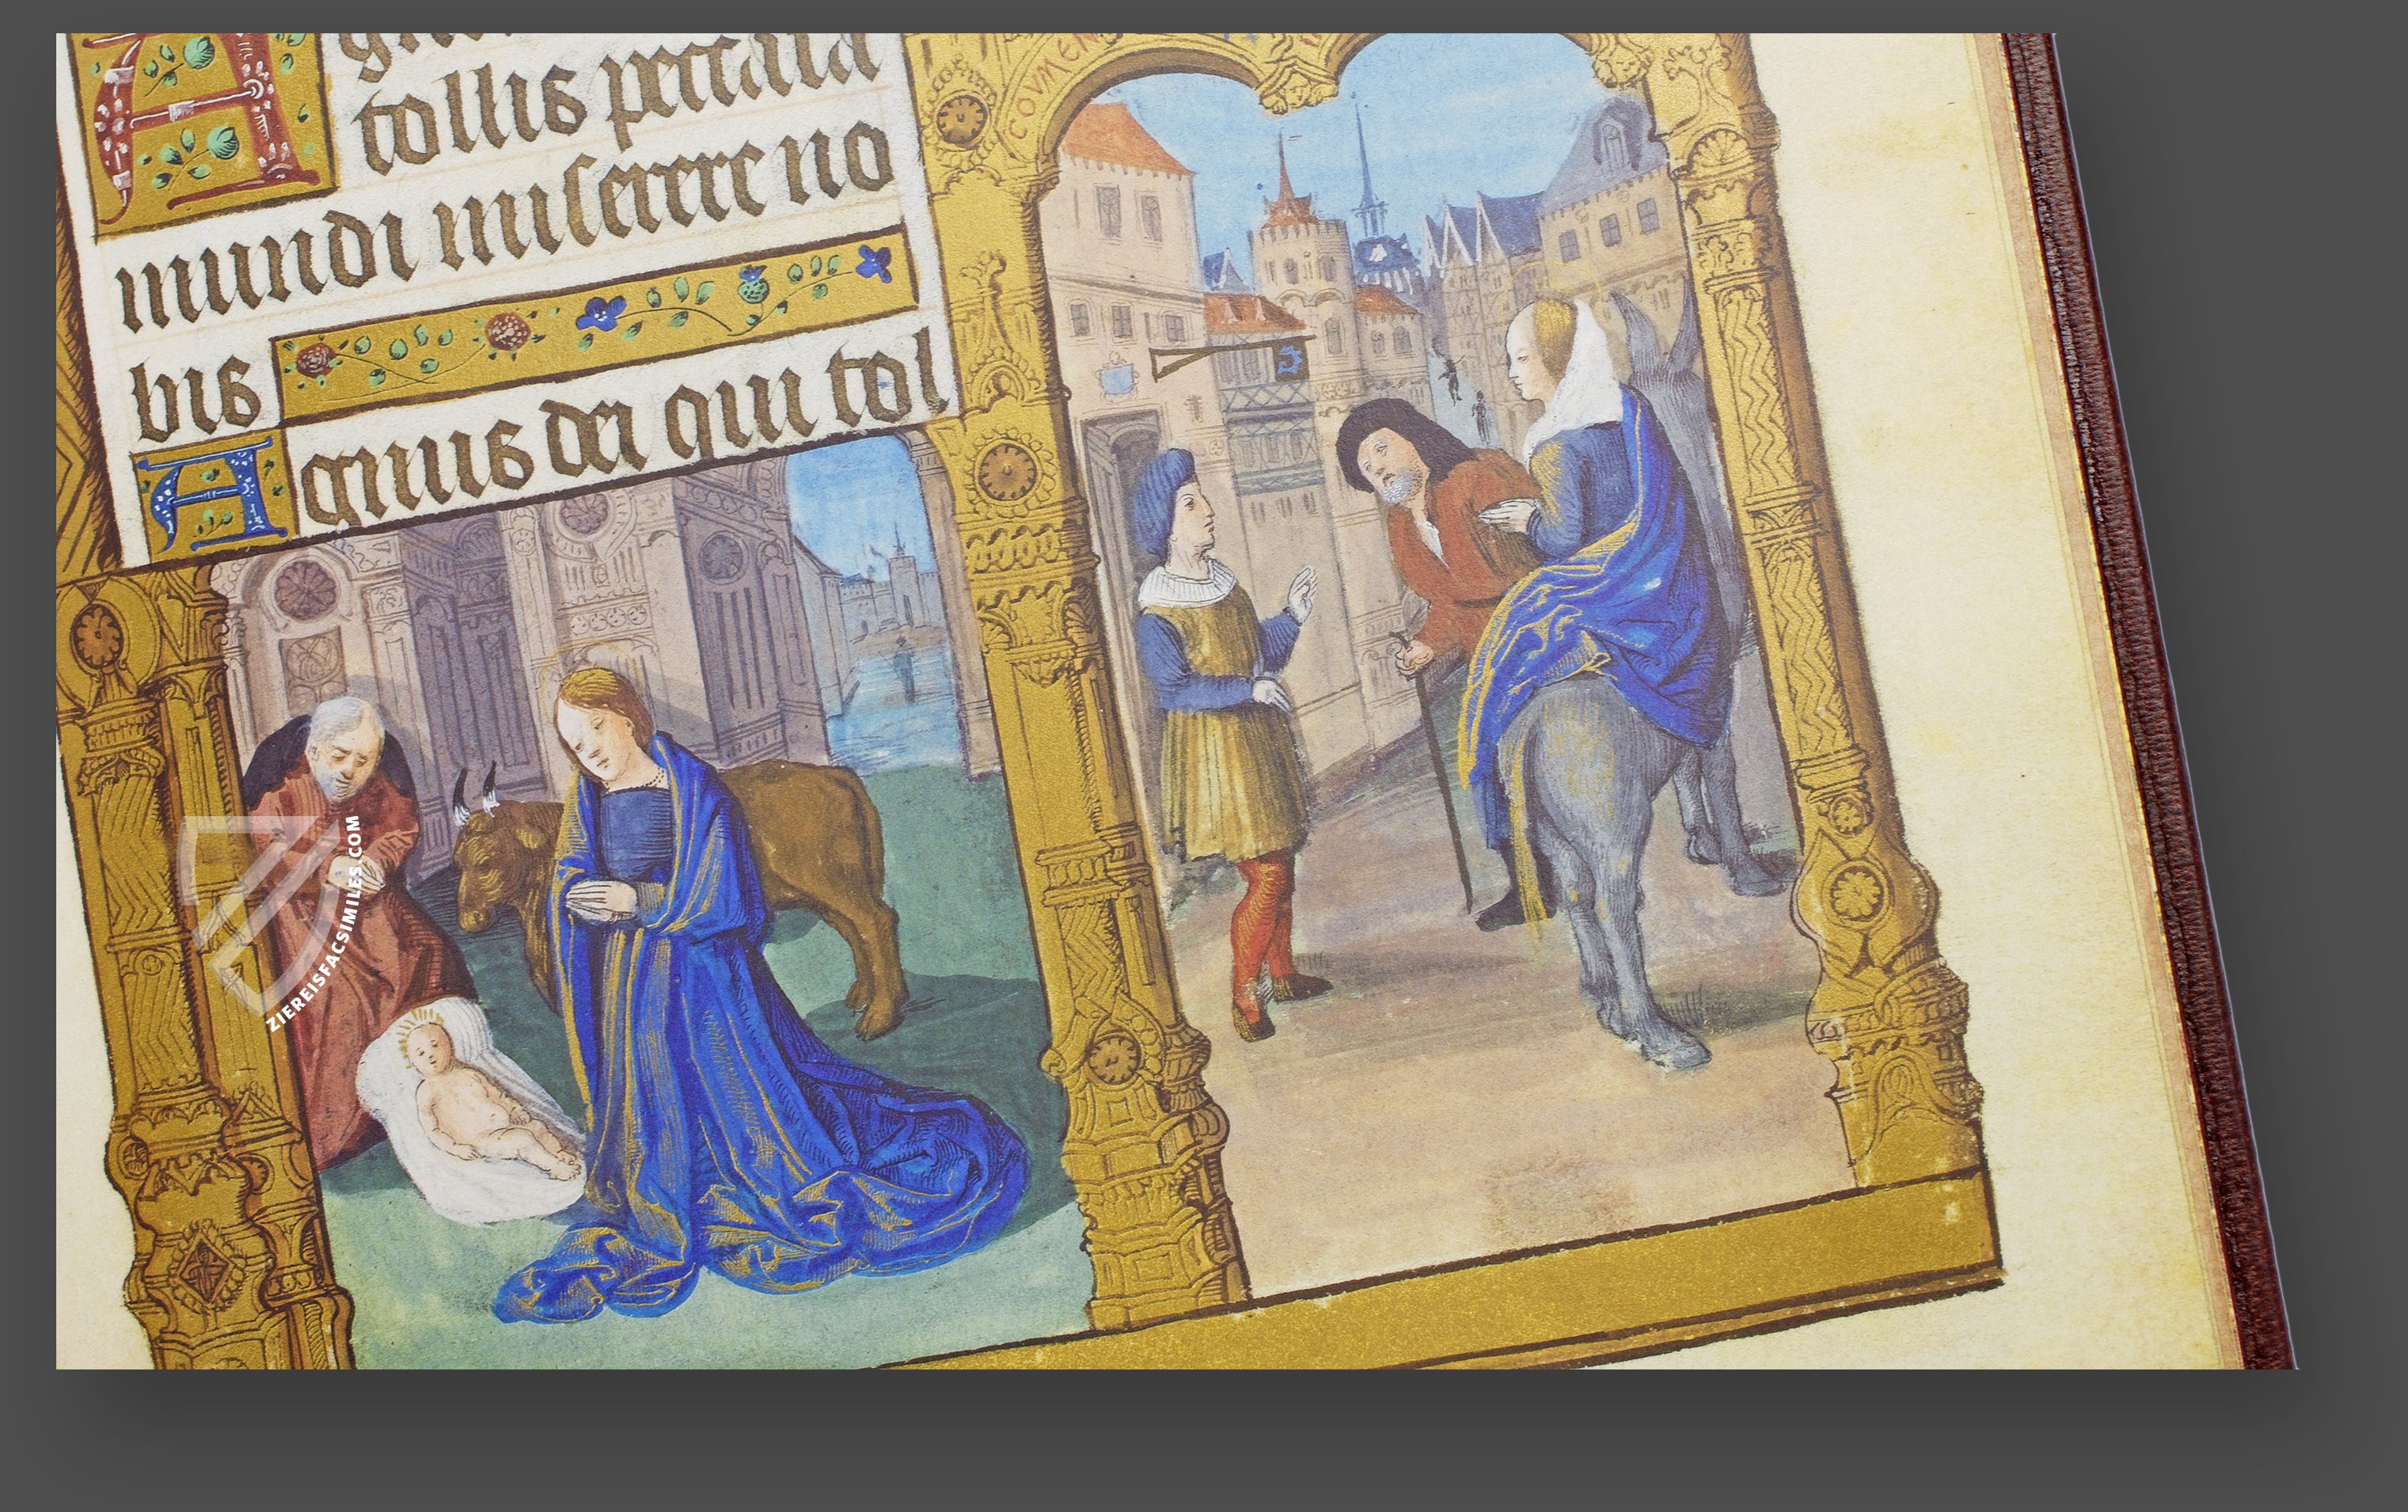 tollis peccata
mundi miserere no
bis
Agnus dei qui tol
COVMEN
ZIEREISFACSIMILES.COM